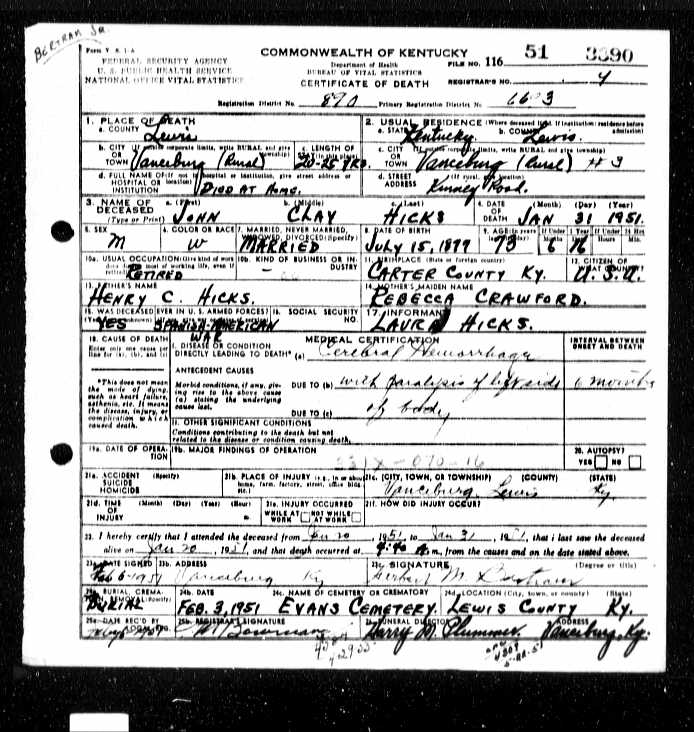 BERTRAM JR.
Form V. S. 1-A
FEDERAL SECURITY AGENCY
U. S. PUBLIC HEALTH SERVICE
NATIONAL OFFICE VITAL STATISTICS
COMMONWEALTH OF KENTUCKY
Department of Health
BUREAU OF VITAL STATISTICS
CERTIFICATE OF DEATH
FILE NO. 116 51 3390
REGISTRAR'S NO. 4
Registration District No. 890 Primary Registration District No. 6603
1. PLACE OF DEATH
a. COUNTY Lewis
2. USUAL RESIDENCE (Where deceased lived. If institution: residence before admission)
a. STATE Kentucky b. COUNTY Lewis.
b. CITY (If outside corporate limits, write RURAL and give township)
OR TOWN Vanceburg (Rural)
c. LENGTH OF STAY (in this place) 20-25 YRS.
c. CITY (If outside corporate limits, write RURAL and give township)
OR TOWN Vanceburg (Rural) #3
d. FULL NAME OF (If not in hospital or institution, give street address or location)
HOSPITAL OR INSTITUTION DIED AT HOME.
d. STREET ADDRESS (If rural, give location) Kinney Road.
3. NAME OF DECEASED (Type or Print)
a. (First) JOHN b. (Middle) CLAY c. (Last) HICKS
4. DATE OF DEATH (Month) (Day) (Year) JAN 31 1951.
5. SEX M
6. COLOR OR RACE W
7. MARRIED, NEVER MARRIED, WIDOWED, DIVORCED (Specify) MARRIED
8. DATE OF BIRTH JULY 15, 1877
9. AGE (In years last birthday) 73 6 16
10a. USUAL OCCUPATION (Give kind of work done during most of working life, even if retired) RETIRED
10b. KIND OF BUSINESS OR INDUSTRY -
11. BIRTHPLACE (State or foreign country) CARTER COUNTY KY.
12. CITIZEN OF WHAT COUNTRY? U.S.A.
13. FATHER'S NAME HENRY C. HICKS.
14. MOTHER'S MAIDEN NAME REBECCA CRAWFORD.
15. WAS DECEASED EVER IN U. S. ARMED FORCES? YES SPANISH-AMERICAN WAR
16. SOCIAL SECURITY NO.
17. INFORMANT LAURA HICKS.
18. CAUSE OF DEATH
Enter only one cause per line for (a), (b), and (c)
MEDICAL CERTIFICATION
INTERVAL BETWEEN ONSET AND DEATH
I. DISEASE OR CONDITION
DIRECTLY LEADING TO DEATH* (a) Cerebral Hemorrhage
*This does not mean the mode of dying, such as heart failure, asthenia, etc. It means the disease, injury, or complication which caused death.
ANTECEDENT CAUSES
Morbid conditions, if any, giving rise to the above cause (a) stating the underlying cause last.
DUE TO (b) with paralysis of left side 6 months
DUE TO (c) of body
II. OTHER SIGNIFICANT CONDITIONS
Conditions contributing to the death but not related to the disease or condition causing death.
19a. DATE OF OPERATION
19b. MAJOR FINDINGS OF OPERATION
331X-070-16
20. AUTOPSY?
YES NO
21a. ACCIDENT SUICIDE HOMICIDE (Specify)
21b. PLACE OF INJURY (e.g., in or about home, farm, factory, street, office bldg., etc.)
21c. (CITY, TOWN, OR TOWNSHIP) (COUNTY) (STATE)
Vanceburg Lewis Ky.
21d. TIME OF INJURY (Month) (Day) (Year) (Hour) m.
21e. INJURY OCCURRED
WHILE AT WORK NOT WHILE AT WORK
21f. HOW DID INJURY OCCUR?
22. I hereby certify that I attended the deceased from Jan 20, 1951, to Jan 31, 1951, that I last saw the deceased
alive on Jan 20, 1951, and that death occurred at m., from the causes and on the date stated above.
23a. DATE SIGNED Feb 6-1951
23b. ADDRESS Vanceburg Ky
23c. SIGNATURE (Degree or title) Herbert M Bertram
24a. BURIAL, CREMATION, REMOVAL (Specify) BURIAL
24b. DATE FEB. 3, 1951
24c. NAME OF CEMETERY OR CREMATORY EVANS CEMETERY.
24d. LOCATION (City, town, or county) (State) LEWIS COUNTY KY.
25a. DATE REC'D BY LOCAL REG.
25b. REGISTRAR'S SIGNATURE Bowman
26. FUNERAL DIRECTOR Harry M. Plummer.
ADDRESS Vanceburg, Ky.